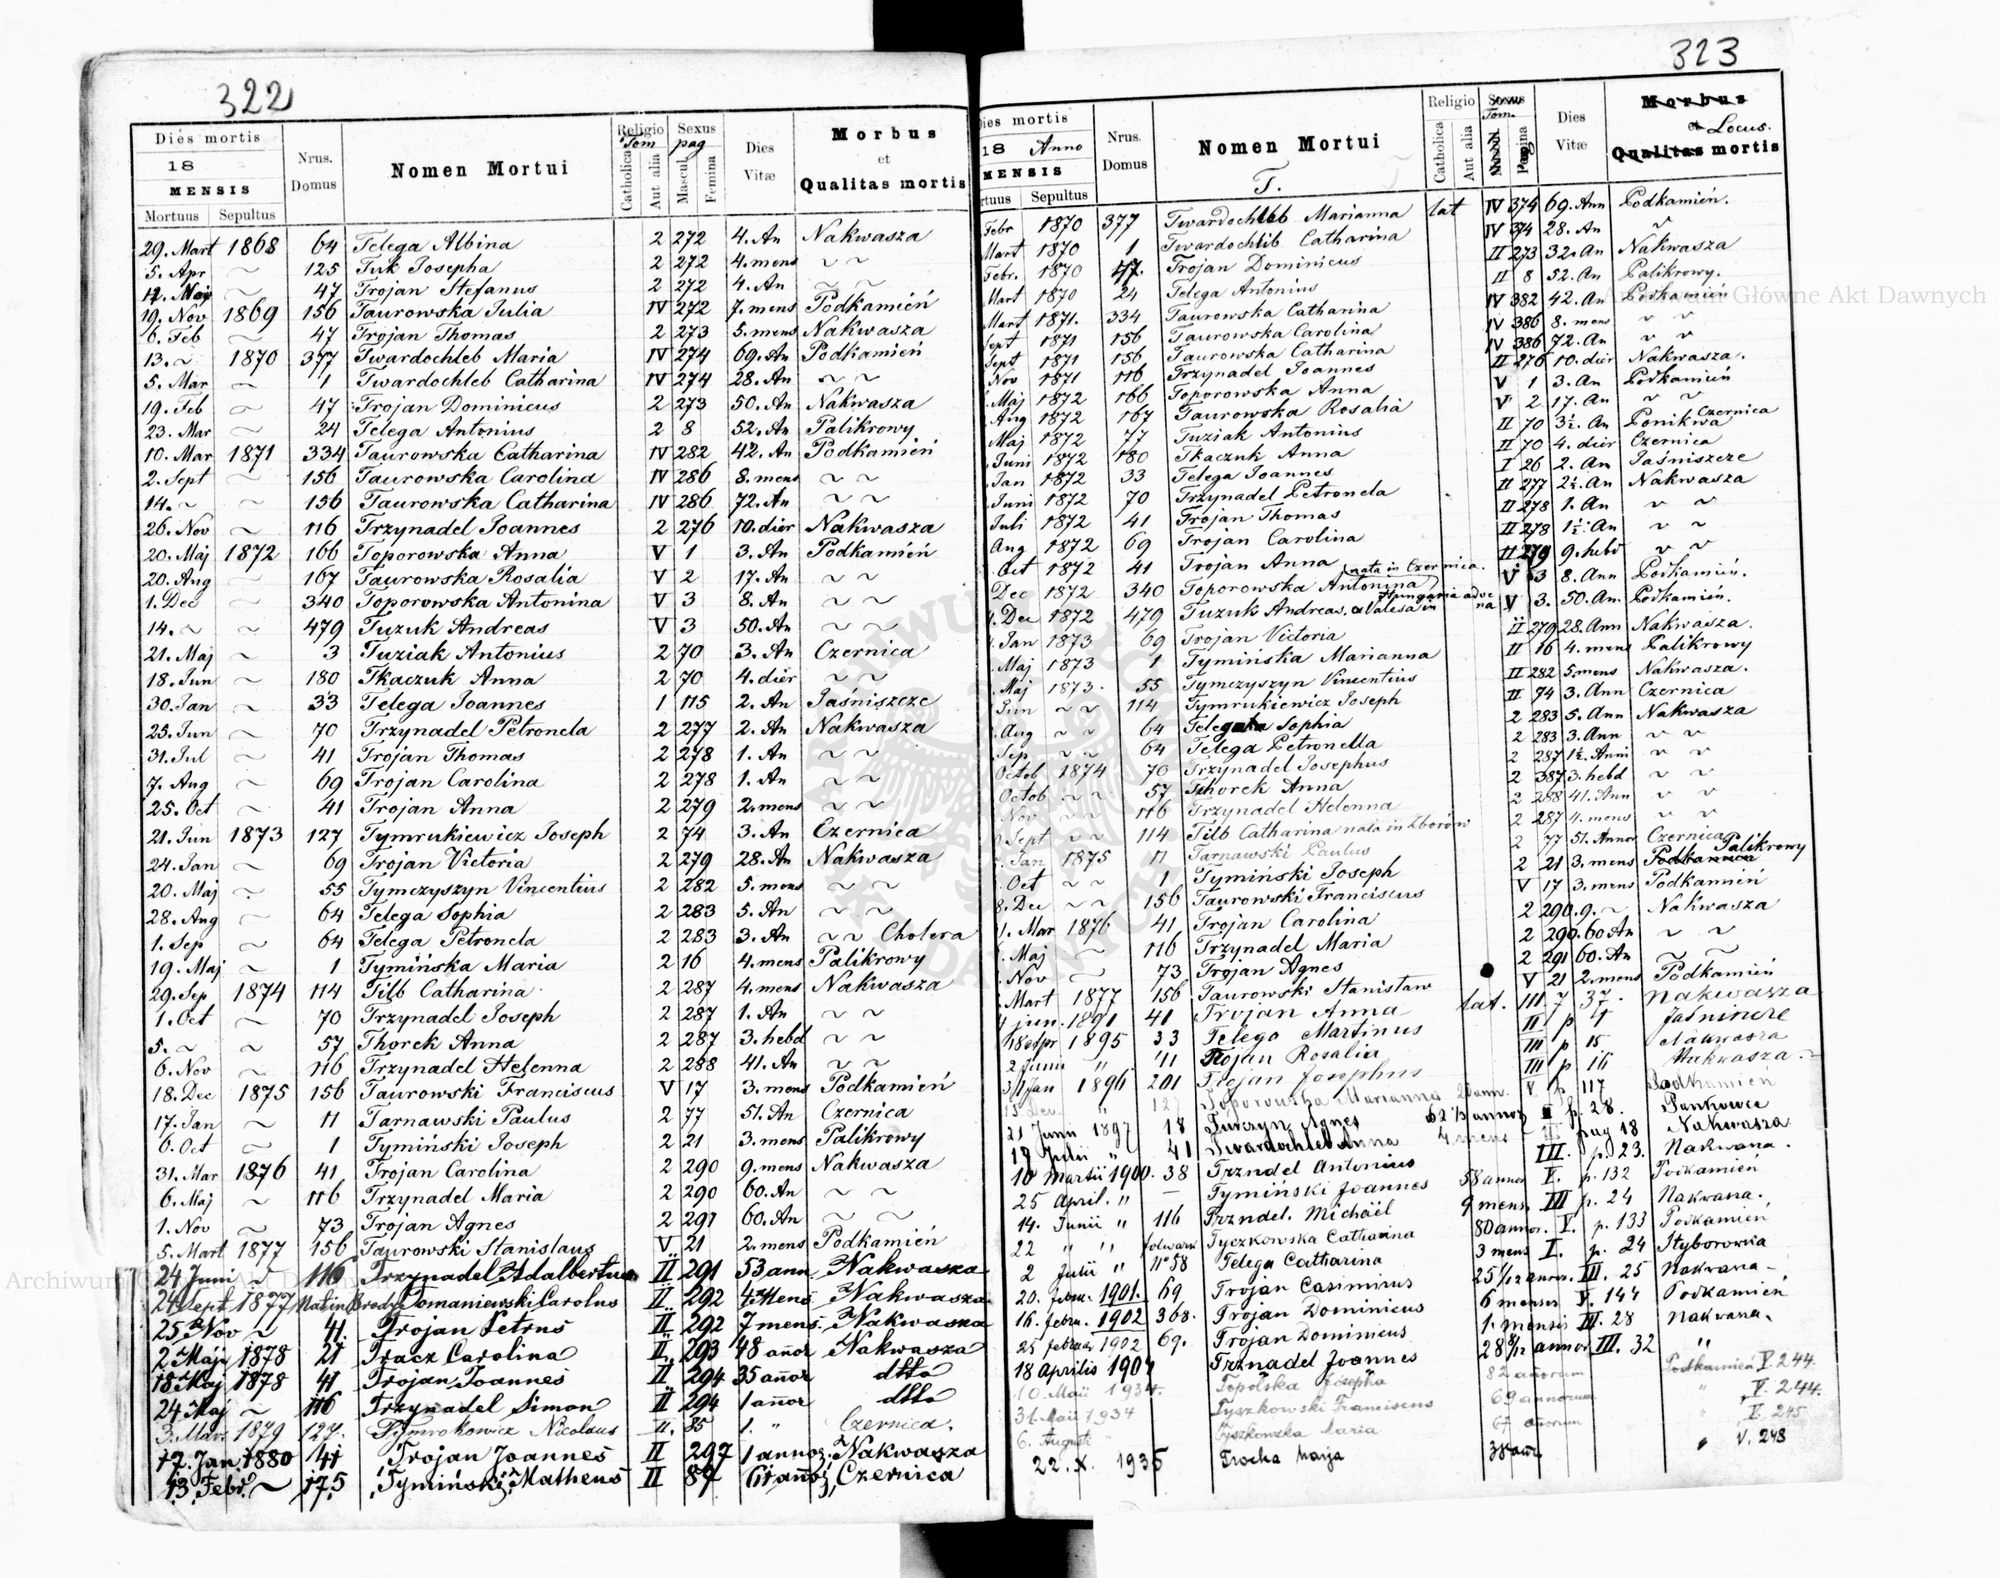 322
Dies mortis
18
MENSIS
Mortuus Sepultus
Nrus. Domus
Nomen Mortui
Religio
Tom
Catholica
Aut alia
Sexus
pag
Mascul.
Femina
Dies Vitæ
Morbus
et
Qualitas mortis
29. Mart 1868 64 Telega Albina 2 272 4. An Nakwasza
5. Apr ~ 125 Tuk Josepha 2 272 4. mens ~ ~
~ 47 Trojan Stefanus 2 272 4. An ~ ~
19. Nov 1869 156 Taurowska Julia IV 272 7. mens Podkamień
6. Feb ~ 47 Trojan Thomas 2 273 5. mens Nakwasza
13. ~ 1870 377 Twardochleb Maria IV 274 69. An Podkamień
5. Mar ~ 1 Twardochleb Catharina IV 274 28. An ~ ~
19. Feb ~ 47 Trojan Dominicus 2 273 50. An Nakwasza
23. Mar ~ 24 Telega Antonius 2 8 52. An Palikrowy
10. Mar 1871 334 Taurowska Catharina IV 282 42. An Podkamień
2. Sept ~ 156 Taurowska Carolina IV 286 8. mens ~ ~
14. ~ ~ 156 Taurowska Catharina IV 286 72. An ~ ~
26. Nov ~ 116 Trzynadel Joannes 2 276 10. dier Nakwasza
20. Maj 1872 166 Toporowska Anna V 1 3. An Podkamień
20. Aug ~ 167 Taurowska Rosalia V 2 17. An ~ ~
1. Dec ~ 340 Toporowska Antonina V 3 8. An ~ ~
14. ~ ~ 479 Tuzuk Andreas V 3 50. An ~ ~
21. Maj ~ 3 Tuziak Antonius 2 70 3. An Czernica
18. Jun ~ 180 Tkaczuk Anna 2 70 4. dier ~ ~
30. Jan ~ 33 Telega Joannes 1 115 2. An Jaśniszcze
25. Jun ~ 70 Trzynadel Petronela 2 277 2. An Nakwasza
31. Jul ~ 41 Trojan Thomas 2 278 1. An ~ ~
7. Aug ~ 69 Trojan Carolina 2 278 1. An ~ ~
25. Oct ~ 41 Trojan Anna 2 279 2. mens ~ ~
21. Jun 1873 127 Tymrukiewicz Joseph 2 74 3. An Czernica
24. Jan ~ 69 Trojan Victoria 2 279 28. An Nakwasza
20. Maj ~ 55 Tymczyszyn Vincentius 2 282 5. mens ~ ~
28. Aug ~ 64 Telega Sophia 2 283 5. An ~ ~
1. Sep ~ 64 Telega Petronela 2 283 3. An ~ ~ Cholera
19. Maj ~ 1 Tymińska Maria 2 16 4. mens Palikrowy
29. Sep 1874 114 Tilb Catharina 2 287 4. mens Nakwasza
1. Oct ~ 70 Trzynadel Joseph 2 287 1. An ~ ~
5. ~ ~ 57 Thorek Anna 2 287 3. hebd ~ ~
6. Nov ~ 116 Trzynadel Helenna 2 288 41. An ~ ~
18. Dec 1875 156 Taurowski Franciscus V 17 3. mens Podkamień
17. Jan ~ 11 Tarnawski Paulus 2 77 51. An Czernica
6. Oct ~ 1 Tymiński Joseph 2 21 3. mens Palikrowy
31. Mar 1876 41 Trojan Carolina 2 290 9. mens Nakwasza
6. Maj ~ 116 Trzynadel Maria 2 290 60. An ~ ~
1. Nov ~ 73 Trojan Agnes 2 291 60. An ~ ~
5. Mart 1877 156 Taurowski Stanislaus V 21 2. mens Podkamień
24 Juni ~ 116 Trzynadel Adalbertus II 291 53 ann Nakwasza
24 Sept 1877 Brody Tomaniewski Carolus II 292 4 Mens Nakwasza
25 Nov ~ 41. Trojan Petrus II 292 7 mens. Nakwasza
2 Maji 1878 21 Tracz Carolina II 293 48 añor Nakwasza
18 Maj 1878 41 Trojan Joannes II 294 35 añor dtto
24 Maj ~ 116 Trzynadel Simon II 294 1 añor dtto
3. Mar. 1879 127. Tymrokowicz Nicolaus II. 85 1. " Czernica.
12. Jan 1880 41 Trojan Joannes II 297 1 annoz. Nakwasza
13 Febr. ~ 175 Tymiński Matheus II 87 añoz Czernica
323
Dies mortis
18 Anno
MENSIS
Mortuus Sepultus
Nrus. Domus
Nomen Mortui
T.
Religio
Catholica
Aut alia
Sexus
Tom.
Pagina
Dies Vitæ
Morbus
et Locus.
Qualitas mortis
Febr 1870 377 Twardochleb Marianna lat IV 374 69. Ann Podkamień.
Mart 1870 1 Twardochlib Catharina IV 374 28. An ~
Febr. 1870 47. Trojan Dominicus II 273 32. An Nakwasza
Mart 1870 24 Telega Antonius II 8 52. An Palikrowy.
Mart 1871. 334 Taurowska Catharina IV 382 42. An Podkamień
Sept 1871 156 Taurowska Carolina IV 386 8. mens ~ ~
Sept 1871 156 Taurowska Catharina IV 386 72. An ~ ~
Nov 1871 116 Trzynadel Joannes II 276 10. dier Nakwasza.
Maj 1872 166 Toporowska Anna V 1 3. An Podkamień
Aug 1872 167 Taurowska Rosalia V 2 17. An ~ ~
Maj 1872 77 Tuziak Antonius II 70 3½. An Ponikwa Czernica
Juni 1872 180 Tkaczuk Anna II 70 4. dier Czernica
Jan 1872 33 Telega Joannes I 26 2. An Jaśniszcze
Juni 1872 70 Trzynadel Petronela II 277 2½. An Nakwasza
Juli 1872 41 Trojan Thomas II 278 1. An ~ ~
Aug 1872 69 Trojan Carolina II 278 1½. An ~ ~
Oct 1872 41 Trojan Anna II 279 9. hebd ~ ~
Dec 1872 340 Toporowska Antonina (nata in Czernica. V 3 8. Ann Podkamień.
Dec 1872 479 Tuzuk Andreas. V 3. 50. An. Podkamień.
Jan 1873 69 Trojan Victoria II 279 28. Ann Nakwasza.
Maj 1873 1 Tymińska Marianna II 16 4. mens Palikrowy
Maj 1873. 55 Tymczyszyn Vincentius II 282 5. mens Nakwasza.
Jun ~ ~ 114 Tymrukiewicz Joseph II 74 3. Ann Czernica
Aug ~ ~ 64 Telega Sophia 2 283 5. Ann Nakwasza
Sep ~ ~ 64 Telega Petronella 2 283 3. Ann ~ ~
Octob 1874 70 Trzynadel Josephus 2 287 1½. Anni ~ ~
Octob ~ ~ 57 Thorek Anna 2 387 3. hebd ~ ~
Nov ~ ~ 116 Trzynadel Helenna 2 288 41. Ann ~ ~
Sept ~ ~ 114 Tilb Catharina nata in Zborów 2 287 4. mens ~ ~
Jan 1875 11 Tarnawski Paulus 2 77 51. Annor Czernica
Oct ~ ~ 1 Tymiński Joseph 2 21 3. mens Podkamień Palikrowy
8. Dec ~ ~ 156 Taurowski Franciscus V 17 3. mens Podkamień
1. Mar 1876 41 Trojan Carolina 2 290. 9. ~ Nakwasza
Maj ~ 116 Trzynadel Maria 2 290. 60 An ~ ~
Nov ~ 73 Trojan Agnes 2 291 60. An ~ ~
Mart 1877 156 Taurowski Stanisław V 21 2. mens Podkamień
jun. 1891 41 Trojan Anna lat. III. 7 37. Nakwasza
1895 33 Telego Martinus II p 1
Junii " 11 Trojan Rosalia III p 15 Nakwasza
31 Jan 1896 201 Trojan Josephus III p 16 Nakwasza.
15 Dec. " 127 Toporowska Marianna V p. 117 Podkamień
21 Junii 1897 18 Agnes annoz II p. 28.
19 Julii " 41 Twardochleb Anna 4 mens III pag 18 Nakwasza
10 Martii 1900. 38 Trzndel Antonius III. p. 23. Nakwasza.
25 April. " — Tymiński Joannes 58 annor V. p. 132 Podkamień
14. Junii " 116 Trzndel. Michäel 9 mens. III p. 24 Nakwasza.
22 " " folwark Tyczkowska Catharina 80 annor. V. p. 133 Podkamień
2 Julii " N° 58 Telega Catharina 3 mens I. p. 24 Styborowka
20. Febru. 1901. 69. Trojan Casimirus 25 annor. III. 25 Nakwasza
16. febru. 1902 368. Trojan Dominicus 6 menses V. 144 Podkamień
25 februar 1902 69. Trojan Dominicus 1. mensis III. 28 Nakwasza.
18 Aprilis 1907 Trznadel Joannes 28 annor III. 32 "
10. Maii 1934. Topolska Josepha 82 añorum Podkamień V. 244.
31. Maii 1934 Tyszkowski Franciscus 69 annorum " V. 244.
6. Augusti " Tyszkowska Maria 67 añorum " V. 245
22. X. 1935 Trocka Marja V. 248
Archiwum Główne Akt Dawnych
Archiwum Główne Akt Dawnych